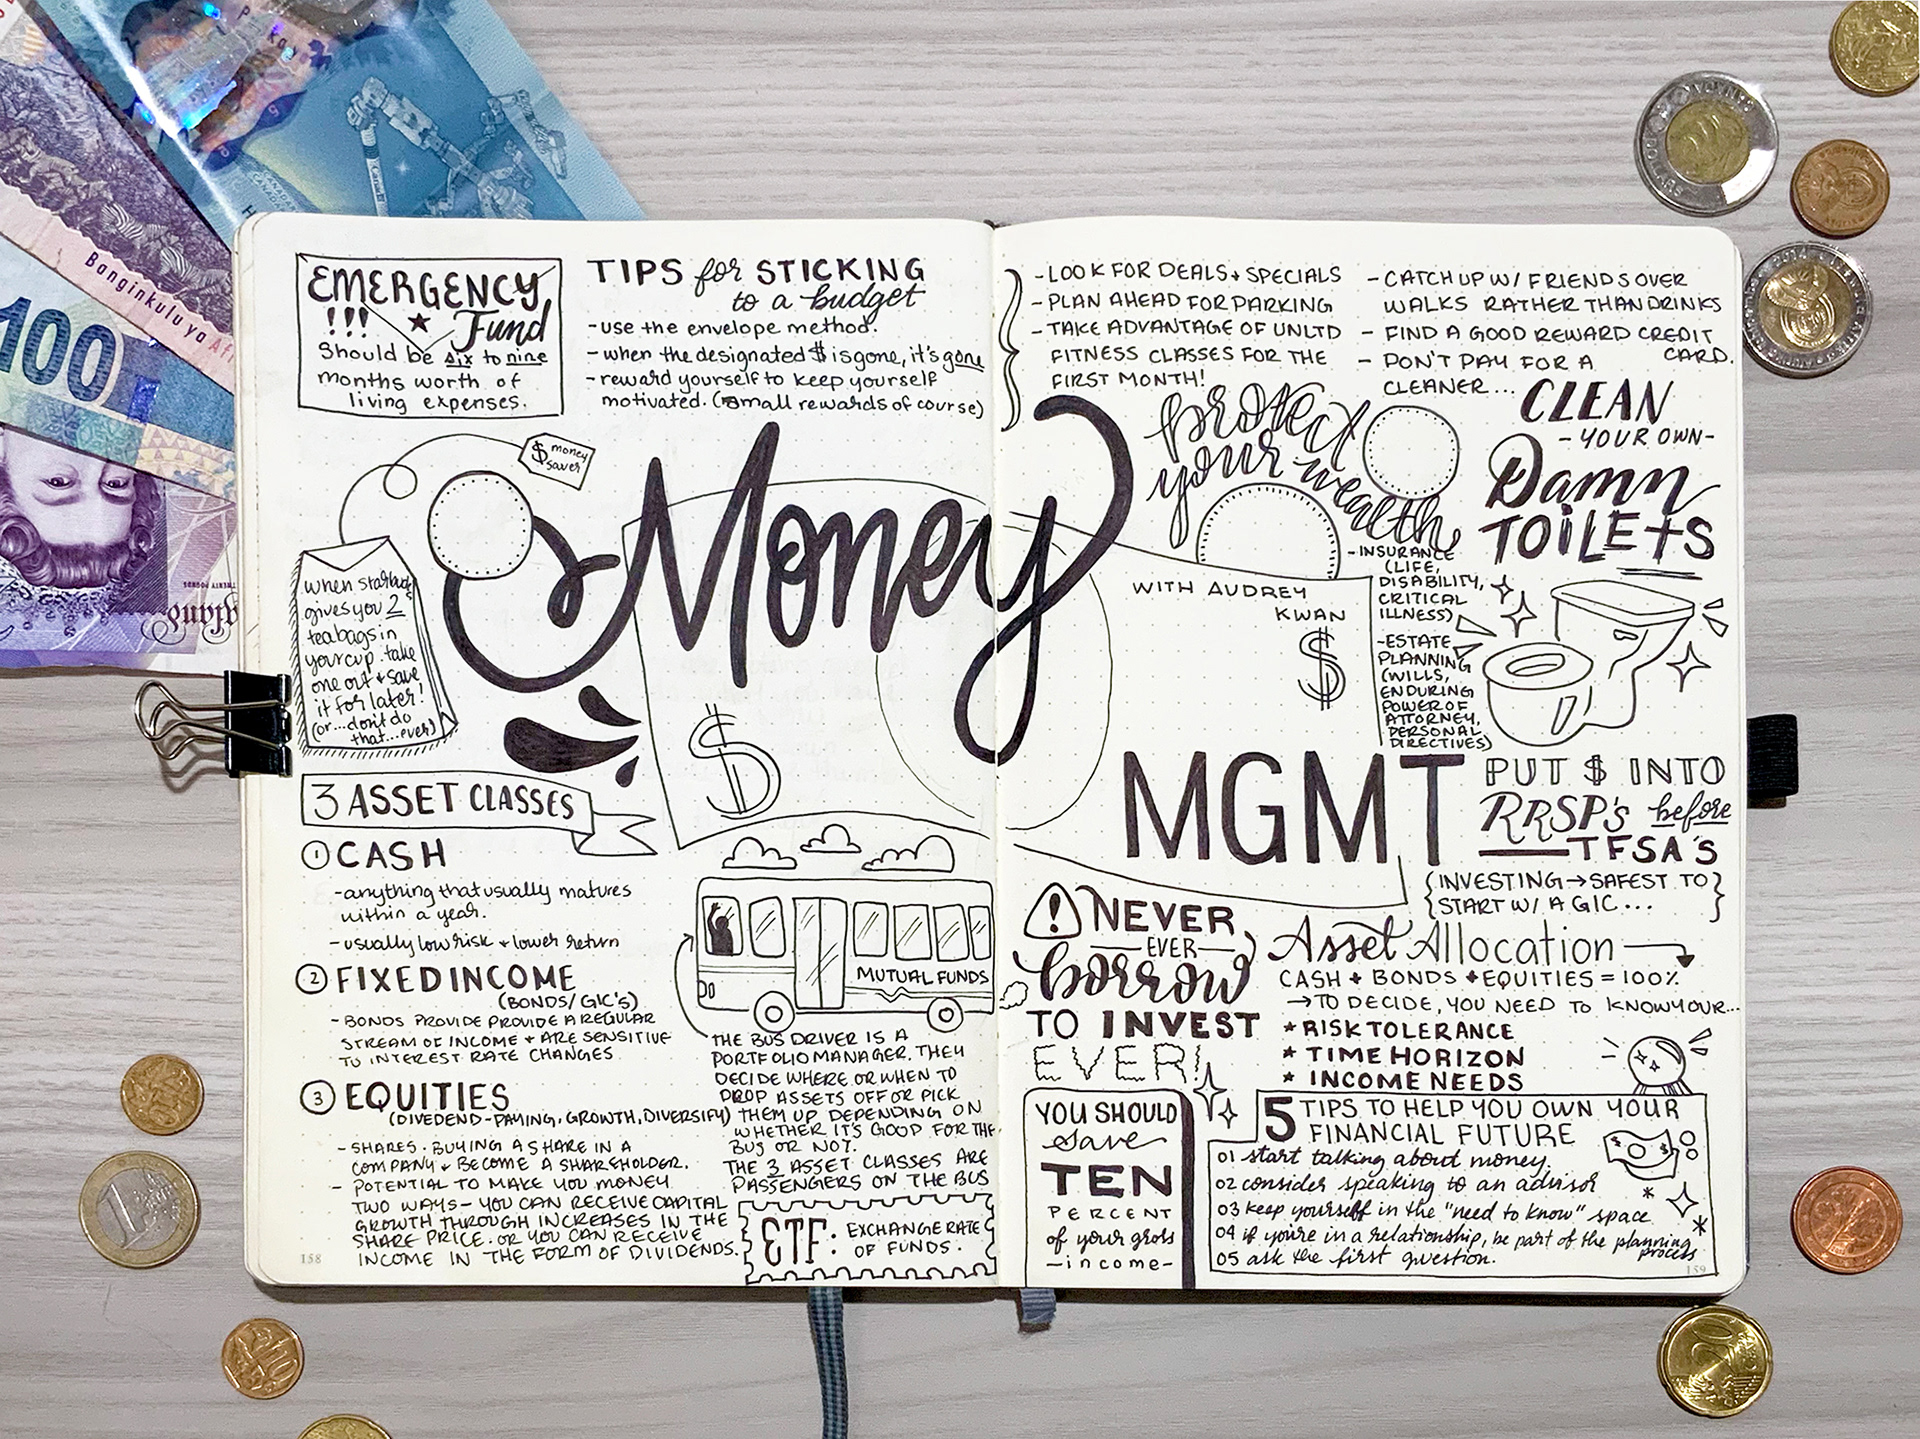 EMERGENCY
!!! Fund
Should be six to nine
months worth of
living expenses.
TIPS for STICKING
to a budget
- use the envelope method.
- when the designated $ is gone, it's gone
- reward yourself to keep yourself
motivated. (small rewards of course)
- LOOK FOR DEALS + SPECIALS
- PLAN AHEAD FOR PARKING
- TAKE ADVANTAGE OF UNLTD
FITNESS CLASSES FOR THE
FIRST MONTH!
- CATCH UP W/ FRIENDS OVER
WALKS RATHER THAN DRINKS
- FIND A GOOD REWARD CREDIT
CARD.
- DON'T PAY FOR A
CLEANER...
CLEAN
- YOUR OWN -
Damn
TOILETS
$ money
saver
when starbucks
gives you 2
teabags in
your cup. take
one out + save
it for later!
(or...don't do
that...ever)
Money
MGMT
WITH AUDREY
KWAN
$
$
protect
your wealth
- INSURANCE
(LIFE,
DISABILITY,
CRITICAL
ILLNESS)
- ESTATE
PLANNING
(WILLS,
ENDURING
POWER OF
ATTORNEY,
PERSONAL
DIRECTIVES)
3 ASSET CLASSES
1 CASH
- anything that usually matures
within a year.
- usually low risk + lower return
2 FIXED INCOME
(BONDS/GIC'S)
- BONDS PROVIDE PROVIDE A REGULAR
STREAM OF INCOME + ARE SENSITIVE
TO INTEREST RATE CHANGES
3 EQUITIES
(DIVEDEND-PAYING, GROWTH, DIVERSIFY)
- SHARES. BUYING A SHARE IN A
COMPANY + BECOME A SHAREHOLDER.
- POTENTIAL TO MAKE YOU MONEY
TWO WAYS - YOU CAN RECEIVE CAPITAL
GROWTH THROUGH INCREASES IN THE
SHARE PRICE. OR YOU CAN RECEIVE
INCOME IN THE FORM OF DIVIDENDS.
158
MUTUAL FUNDS
THE BUS DRIVER IS A
PORTFOLIO MANAGER. THEY
DECIDE WHERE OR WHEN TO
DROP ASSETS OFF OR PICK
THEM UP DEPENDING ON
WHETHER IT'S GOOD FOR THE
BUS OR NOT.
THE 3 ASSET CLASSES ARE
PASSENGERS ON THE BUS
ETF: EXCHANGE RATE
OF FUNDS.
! NEVER
EVER
borrow
TO INVEST
EVER!
YOU SHOULD
save
TEN
PERCENT
of your gross
- income -
PUT $ INTO
RRSP's before
TFSA'S
{INVESTING → SAFEST TO}
{START W/ A GIC...}
Asset Allocation
CASH + BONDS + EQUITIES = 100%
→ TO DECIDE, YOU NEED TO KNOW YOUR...
* RISK TOLERANCE
* TIME HORIZON
* INCOME NEEDS
5 TIPS TO HELP YOU OWN YOUR
FINANCIAL FUTURE
01 start talking about money
02 consider speaking to an advisor
03 keep yourself in the "need to know" space
04 if you're in a relationship, be part of the planning
process
05 ask the first question.
159
100
Banginkulu ya Af
TWENTY POUNDS
Canada
1
20